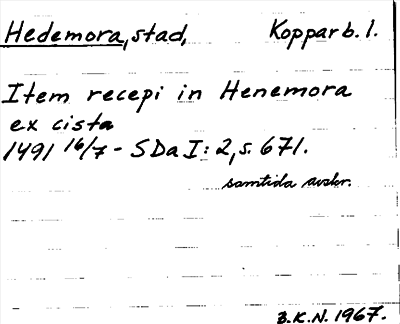 Hedemora, stad, Kopparb. l.
Item recepi in Henemora
ex cista
1491 16/7 - SDa I: 2, s. 671.
samtida avskr.
B.K.N. 1967.